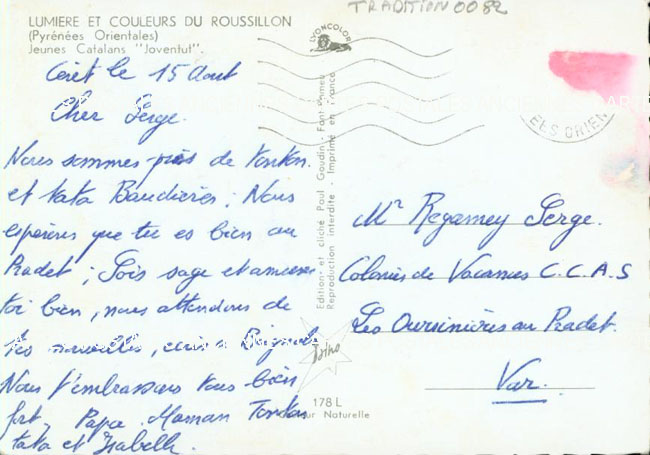 LUMIERE ET COULEURS DU ROUSSILLON
(Pyrénées Orientales)
Jeunes Catalans "Joventut".
TRADITION 0082
LYONCOLOR
Céret le 15 Aout
Cher Serge.
Nous sommes près de tonton
et tata Baudières ; Nous
espérons que tu es bien au
Pradet ; Sois sage et amuse
toi bien, nous attendons de
tes nouvelles,
Nous t'embrassons tous bien
fort. Papa. Maman Tonton
tata et Isabelle.
Edition et cliché Paul Goudin, Font-Romeu
Reproduction interdite - Imprimé en France
178 L
Couleur Naturelle
ÉES ORIEN
Mr Regamey Serge.
Colonies de Vacances C.C.A.S
Les Oursinières au Pradet.
Var.